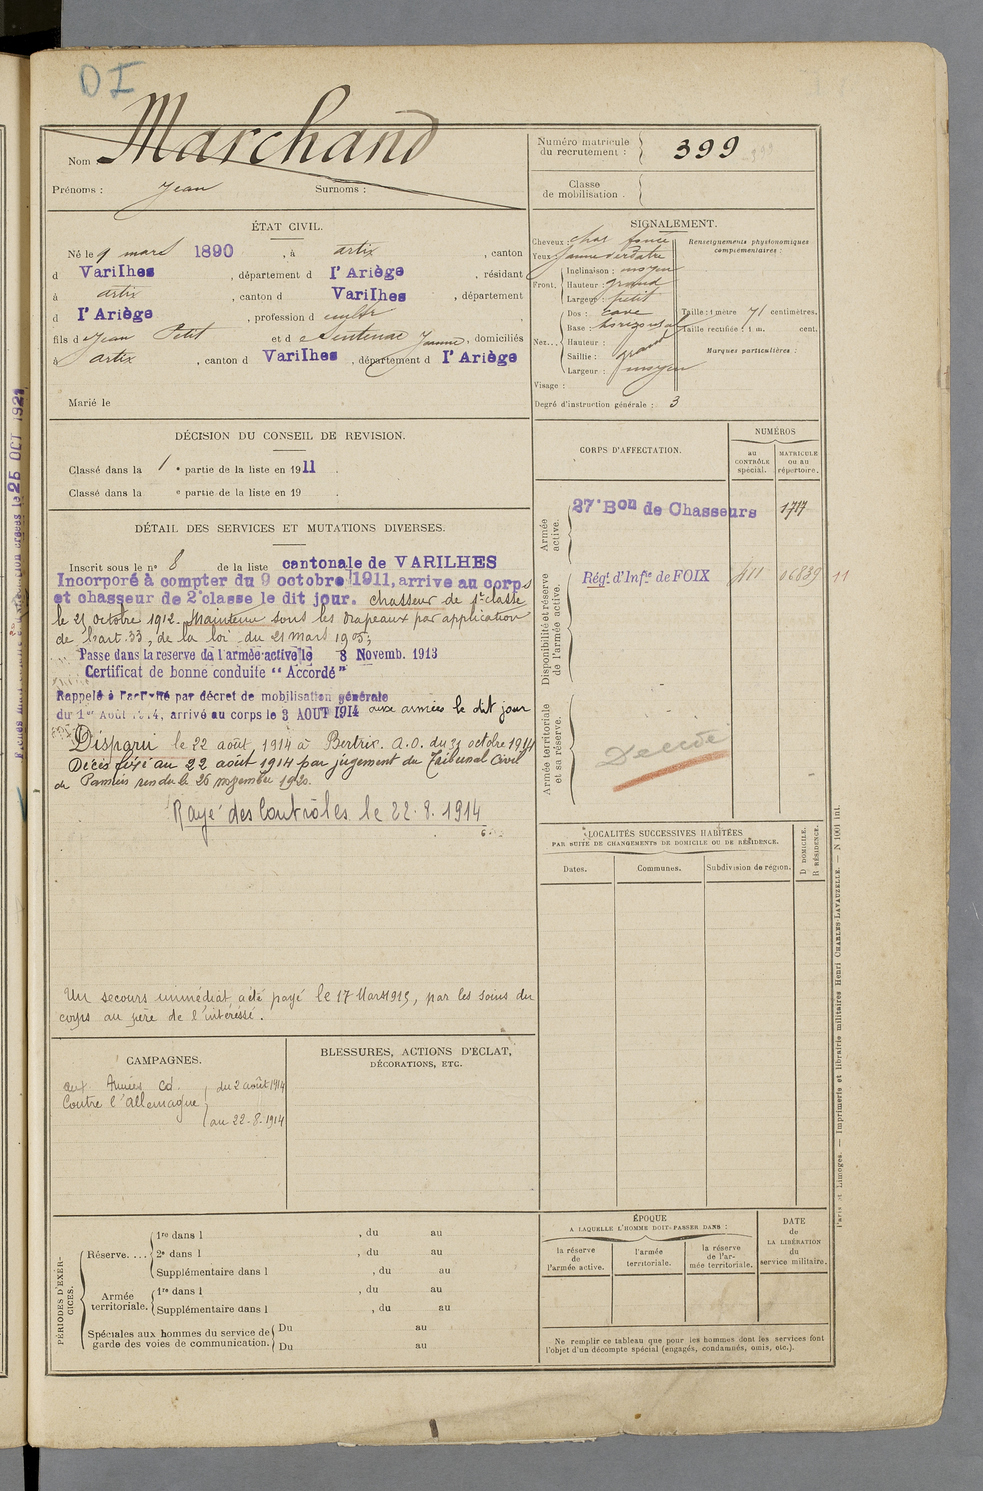 DI
Nom : Marchand
Prénoms : Jean Surnoms :
Numéro matricule du recrutement : 399
Classe de mobilisation :
ÉTAT CIVIL.
Né le 9 mars 1890, à artix, canton
d Varilhes, département d l'Ariège, résidant
à artix, canton d Varilhes, département
d l'Ariège, profession d cultr
fils d e Jean Petit et d e Sentenac Jeanne, domiciliés
à artix, canton d Varilhes, département d l'Ariège
Marié le
SIGNALEMENT.
Cheveux : chat foncé
Yeux : jaune verdatre
Front. Inclinaison : moyen
Hauteur : grand
Largeur : petit
Nez... Dos : cave
Base : horizontal
Hauteur :
Saillie : grand
Largeur : moyen
Visage :
Degré d'instruction générale : 3
Renseignements physionomiques complémentaires :
Taille : 1 mètre 71 centimètres.
Taille rectifiée : 1 m. cent.
Marques particulières :
DÉCISION DU CONSEIL DE REVISION.
Classé dans la 1 e partie de la liste en 1911.
Classé dans la e partie de la liste en 19 .
CORPS D'AFFECTATION.
NUMÉROS
au CONTRÔLE spécial.
MATRICULE ou au répertoire.
Armée active.
27e Bon de Chasseurs 1717
Disponibilité et réserve de l'armée active.
Régt. d'Infie de FOIX 411 06839 11
Armée territoriale et sa réserve.
Décédé
DÉTAIL DES SERVICES ET MUTATIONS DIVERSES.
Inscrit sous le n° 8 de la liste cantonale de VARILHES
Incorporé à compter du 9 octobre 1911, arrive au corps
et chasseur de 2e classe le dit jour. chasseur de 1e classe
le 21 octobre 1912. Maintenu sous les drapeaux par application
de l'art. 33, de la loi du 21 mars 1905;
Passe dans la reserve de l'armée active le 8 Novemb. 1913
Certificat de bonne conduite "Accordé"
Rappelé à l'activité par décret de mobilisation générale
du 1er Août 1914, arrivé au corps le 3 AOUT 1914 aux armées le dit jour
Disparu le 22 août, 1914 à Bertrix. A.O. du 31 octobre 1914
Décès fixé au 22 août 1914 par jugement du Tribunal Civil
de Pamiers rendu le 26 novembre 1920.
Rayé des Contrôles le 22.8.1914
Un secours immédiat a été payé le 17 Mars 1915, par les soins du
corps au père de l'intéressé.
LOCALITÉS SUCCESSIVES HABITÉES
PAR SUITE DE CHANGEMENTS DE DOMICILE OU DE RÉSIDENCE.
Dates. Communes. Subdivision de région.
D DOMICILE. R RÉSIDENCE.
CAMPAGNES.
aux Armées cd. du 2 août 1914
Contre l'Allemagne
au 22-8-1914
BLESSURES, ACTIONS D'ÉCLAT,
DÉCORATIONS, ETC.
PÉRIODES D'EXERCICES.
Réserve.... 1re dans l , du au
2e dans l , du au
Supplémentaire dans l , du au
Armée territoriale. 1re dans l , du au
Supplémentaire dans l , du au
Spéciales aux hommes du service de garde des voies de communication. Du au
Du au
ÉPOQUE
A LAQUELLE L'HOMME DOIT PASSER DANS :
la réserve de l'armée active.
l'armée territoriale.
la réserve de l'armée territoriale.
DATE de LA LIBÉRATION du service militaire.
Ne remplir ce tableau que pour les hommes dont les services font
l'objet d'un décompte spécial (engagés, condamnés, omis, etc.).
Paris et Limoges. — Imprimerie et librairie militaires Henri CHARLES-LAVAUZELLE. — N 1001 int.
25 OCT 1921